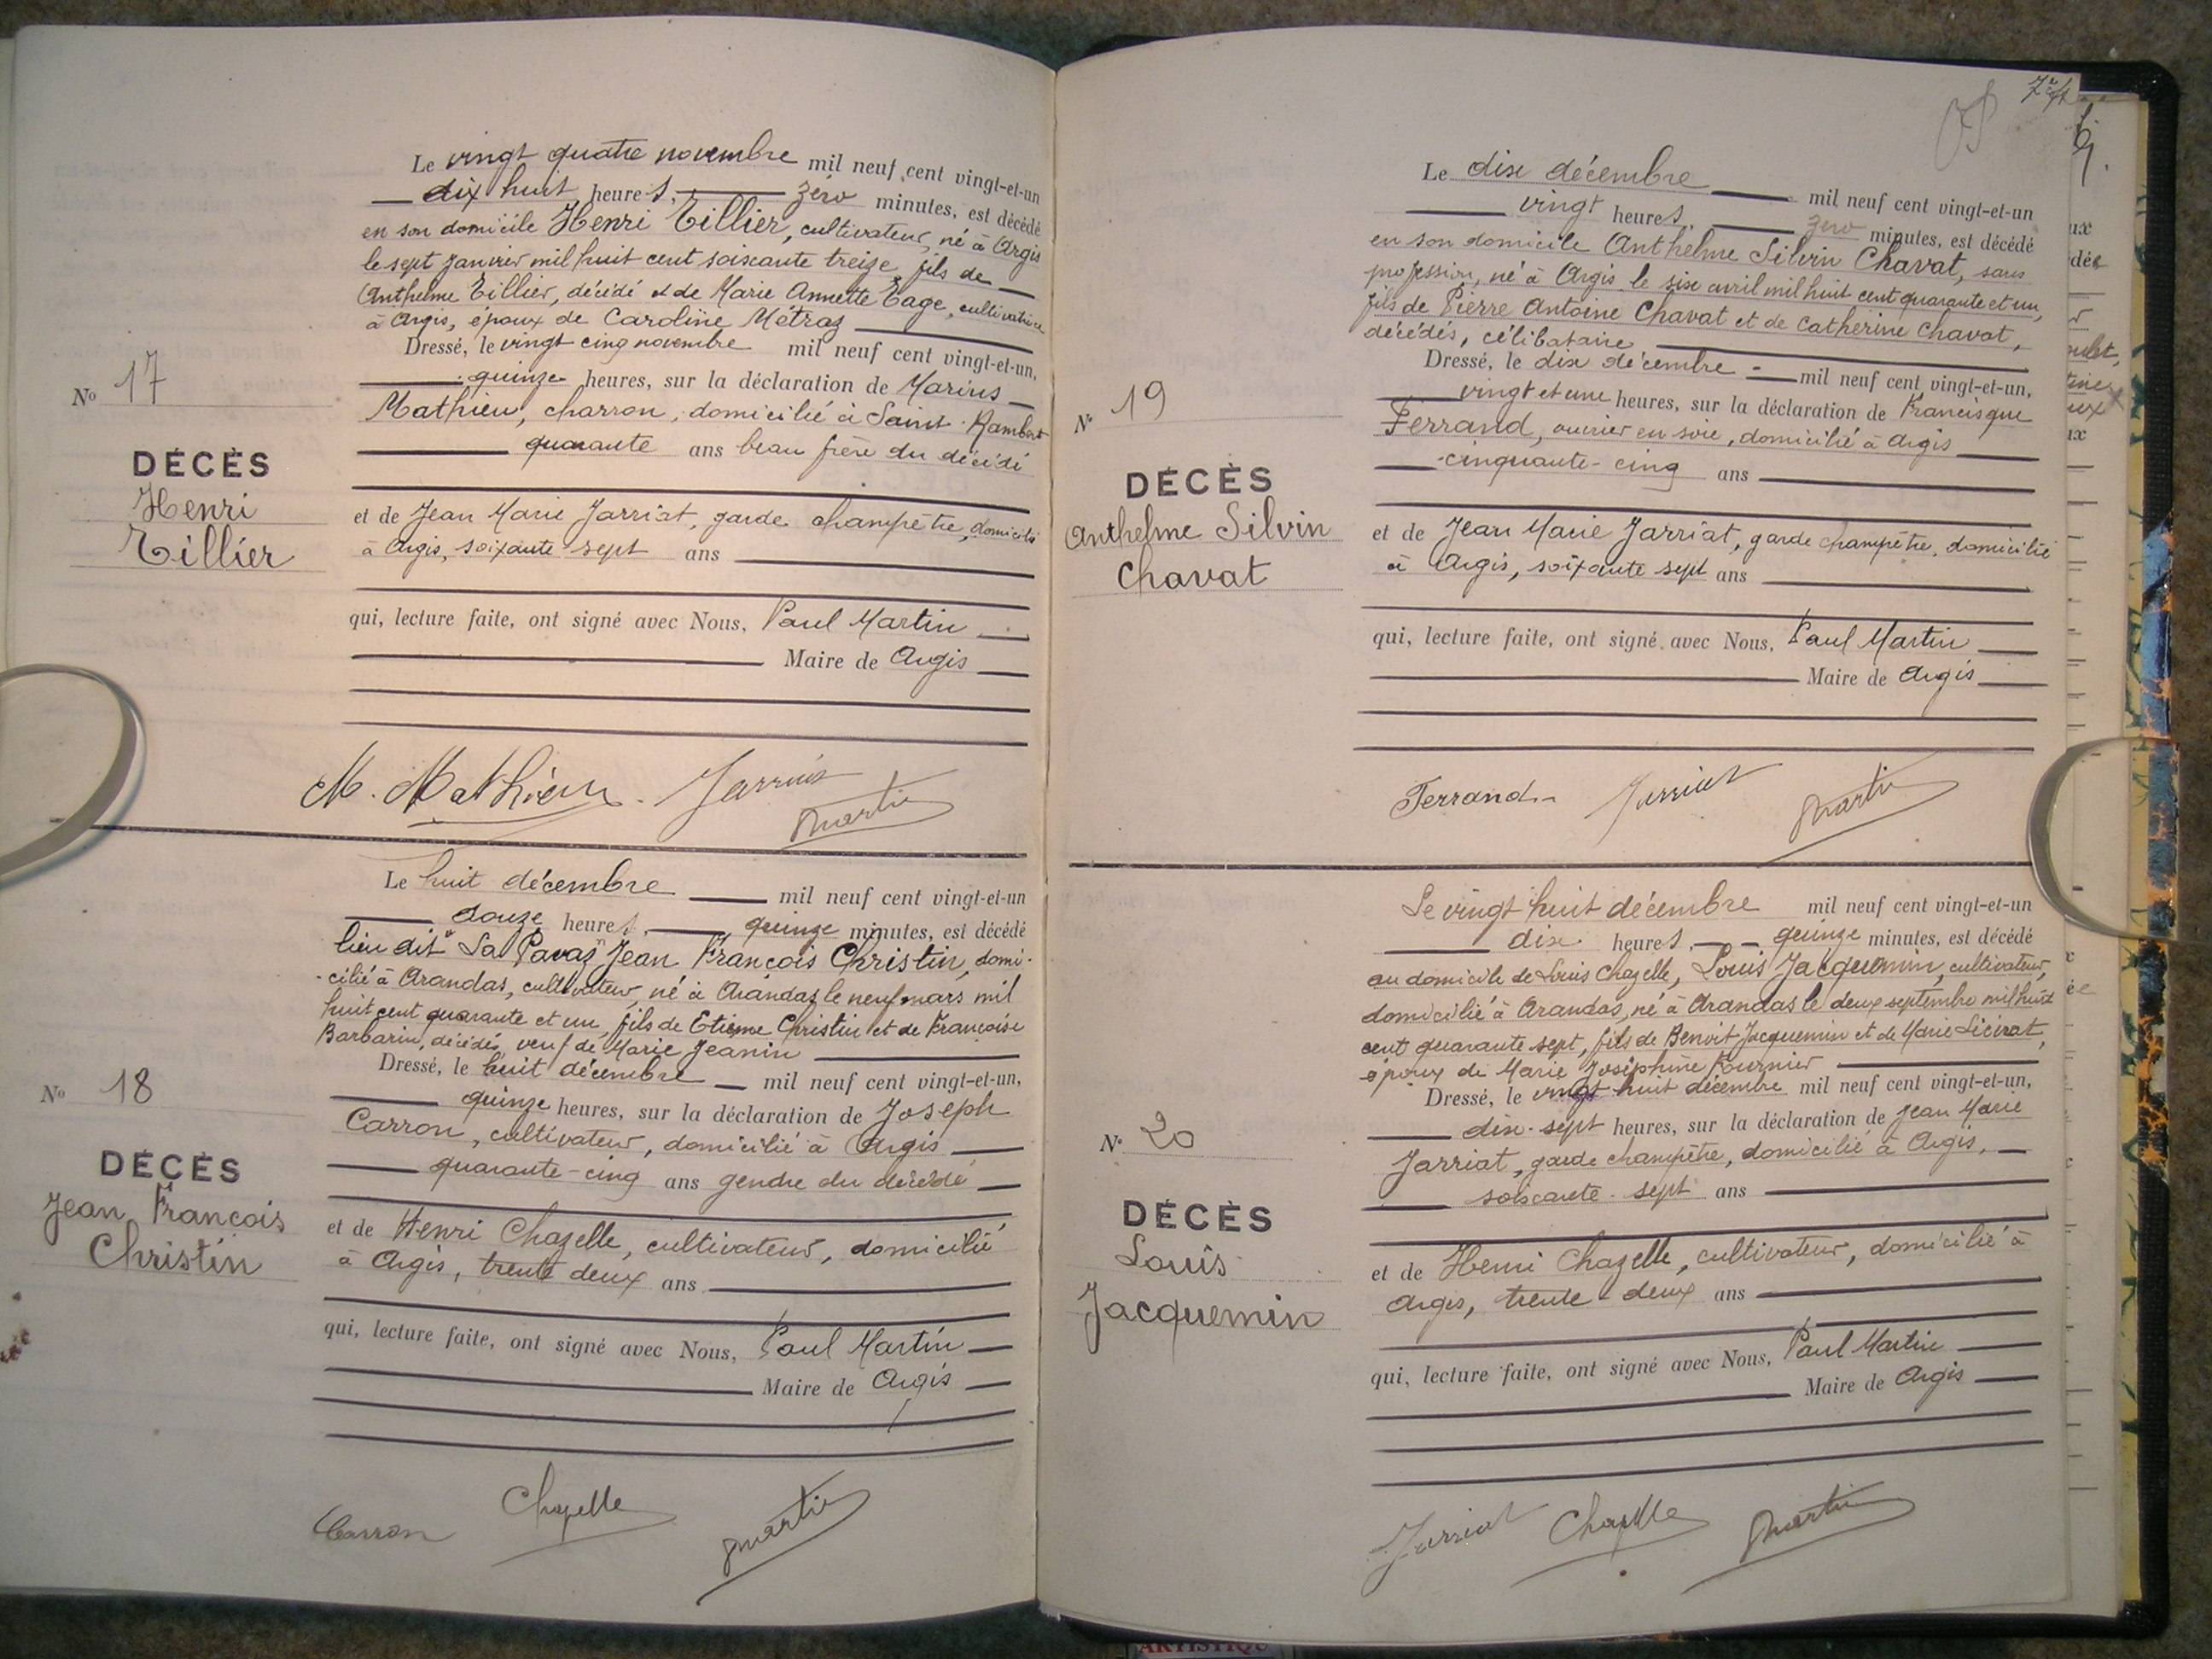 Le vingt quatre novembre mil neuf cent vingt-et-un
dix huit heures, zéro minutes, est décédé
en son domicile Henri Tillier, cultivateur, né à Argis
le sept janvier mil huit cent soixante treize, fils de
Anthelme Tillier, décédé et de Marie Annette Tage, cultivatrice
à Argis, époux de Caroline Métraz
Dressé, le vingt cinq novembre mil neuf cent vingt-et-un,
quinze heures, sur la déclaration de Marius
Mathieu, charron, domicilié à Saint-Rambert
quarante ans beau frère du décédé
et de Jean Marie Jarriat, garde champêtre, domicilié
à Argis, soixante sept ans
qui, lecture faite, ont signé avec Nous, Paul Martin
Maire de Argis
No 17
DÉCÈS
Henri
Tillier
M. Mathieu Jarriat
Martin
Le huit décembre mil neuf cent vingt-et-un
douze heures, quinze minutes, est décédé
lieu dit "La Pavaz" Jean François Christin, domi-
-cilié à Arandas, cultivateur, né à Arandas le neuf mars mil
huit cent quarante et un, fils de Etienne Christin et de Françoise
Barbarin, décédés, veuf de Marie Jeanin
Dressé, le huit décembre mil neuf cent vingt-et-un,
quinze heures, sur la déclaration de Joseph
Carron, cultivateur, domicilié à Argis
quarante-cinq ans gendre du décédé
et de Henri Chazelle, cultivateur, domicilié
à Argis, trente deux ans
qui, lecture faite, ont signé avec Nous, Paul Martin
Maire de Argis
No 18
DÉCÈS
Jean François
Christin
Carron Chazelle Martin
Le dix décembre mil neuf cent vingt-et-un
vingt heures, zéro minutes, est décédé
en son domicile Anthelme Silvin Chavat, sans
profession, né à Argis le six avril mil huit cent quarante et un,
fils de Pierre Antoine Chavat et de Catherine Chavat,
décédés, célibataire
Dressé, le dix décembre mil neuf cent vingt-et-un,
vingt et une heures, sur la déclaration de Francisque
Ferrand, ouvrier en soie, domicilié à Argis
cinquante-cinq ans
et de Jean Marie Jarriat, garde champêtre, domicilié
à Argis, soixante sept ans
qui, lecture faite, ont signé avec Nous, Paul Martin
Maire de Argis
No 19
DÉCÈS
Anthelme Silvin
Chavat
Ferrand Jarriat Martin
Le vingt huit décembre mil neuf cent vingt-et-un
dix heures, quinze minutes, est décédé
au domicile de Louis Chazelle, Louis Jacquemin, cultivateur,
domicilié à Arandas, né à Arandas le deux septembre mil huit
cent quarante sept, fils de Benoit Jacquemin et de Marie Licirat,
époux de Marie Joséphine Fournier
Dressé, le vingt huit décembre mil neuf cent vingt-et-un,
dix-sept heures, sur la déclaration de Jean Marie
Jarriat, garde champêtre, domicilié à Argis,
soixante-sept ans
et de Henri Chazelle, cultivateur, domicilié à
Argis, trente-deux ans
qui, lecture faite, ont signé avec Nous, Paul Martin
Maire de Argis
No 20
DÉCÈS
Louis
Jacquemin
Jarriat Chazelle Martin